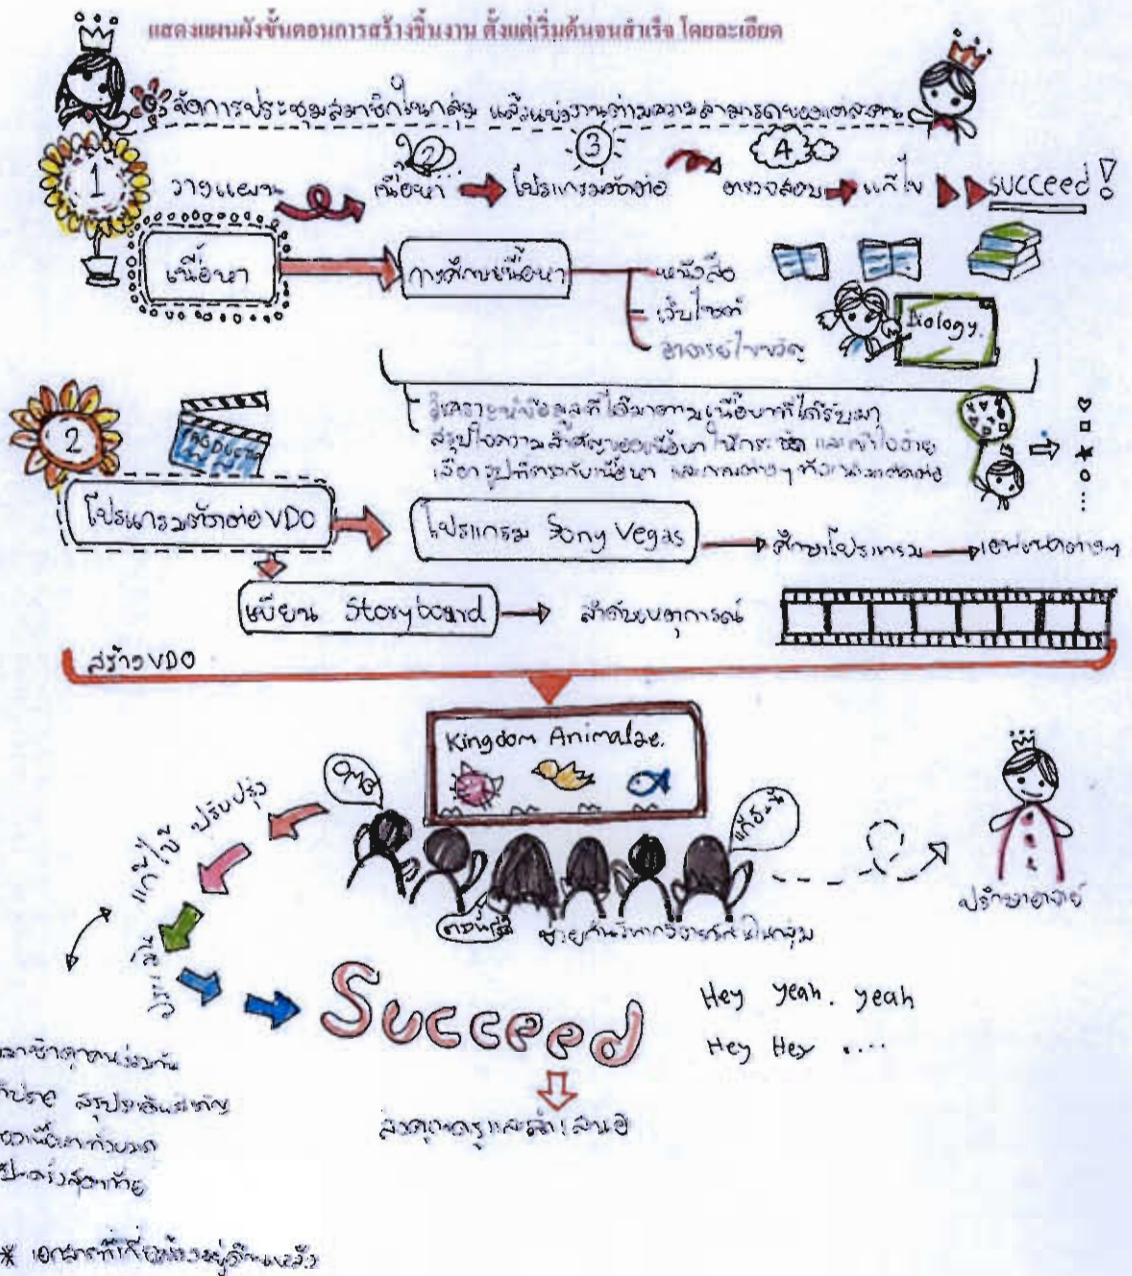 แสดงแผนผังขั้นตอนการสร้างชิ้นงาน ตั้งแต่เริ่มต้นจนสำเร็จ โดยละเอียด
จัดการประชุมสมาชิกในกลุ่ม และแบ่งงานตามความสามารถของแต่ละคน
1 วางแผน 2 เนื้อหา 3 โปรแกรมตัดต่อ 4 ตรวจสอบ แก้ไข succeed!
เนื้อหา การศึกษาเนื้อหา หนังสือ
เว็บไซต์
อาจารย์ Biology.
วิเคราะห์ข้อมูลที่ได้มาตามเนื้อหาที่ได้รับมา
สรุปใจความสำคัญของเนื้อหา ให้กระชับ และเข้าใจง่าย
เลือกรูปที่ตรงกับเนื้อหา และภาพต่างๆ ที่จะนำมาตัดต่อ
2
โปรแกรมตัดต่อ VDO โปรแกรม Sony Vegas ศึกษาโปรแกรม เอฟเฟคต่างๆ
เขียน Storyboard ลำดับเหตุการณ์
สร้าง VDO
Kingdom Animalae.
OMG
ปรับปรุง
แก้ไข
ประเมิน
ตอนนี้
ช่วยกันวิพากวิจารณ์กันในกลุ่ม
ปรึกษาอาจารย์
Succeed
Hey yeah. yeah
Hey Hey ....
ส่งคุณครูและนำเสนอ
* เอกสารที่เกี่ยวข้องอยู่ด้านหลัง